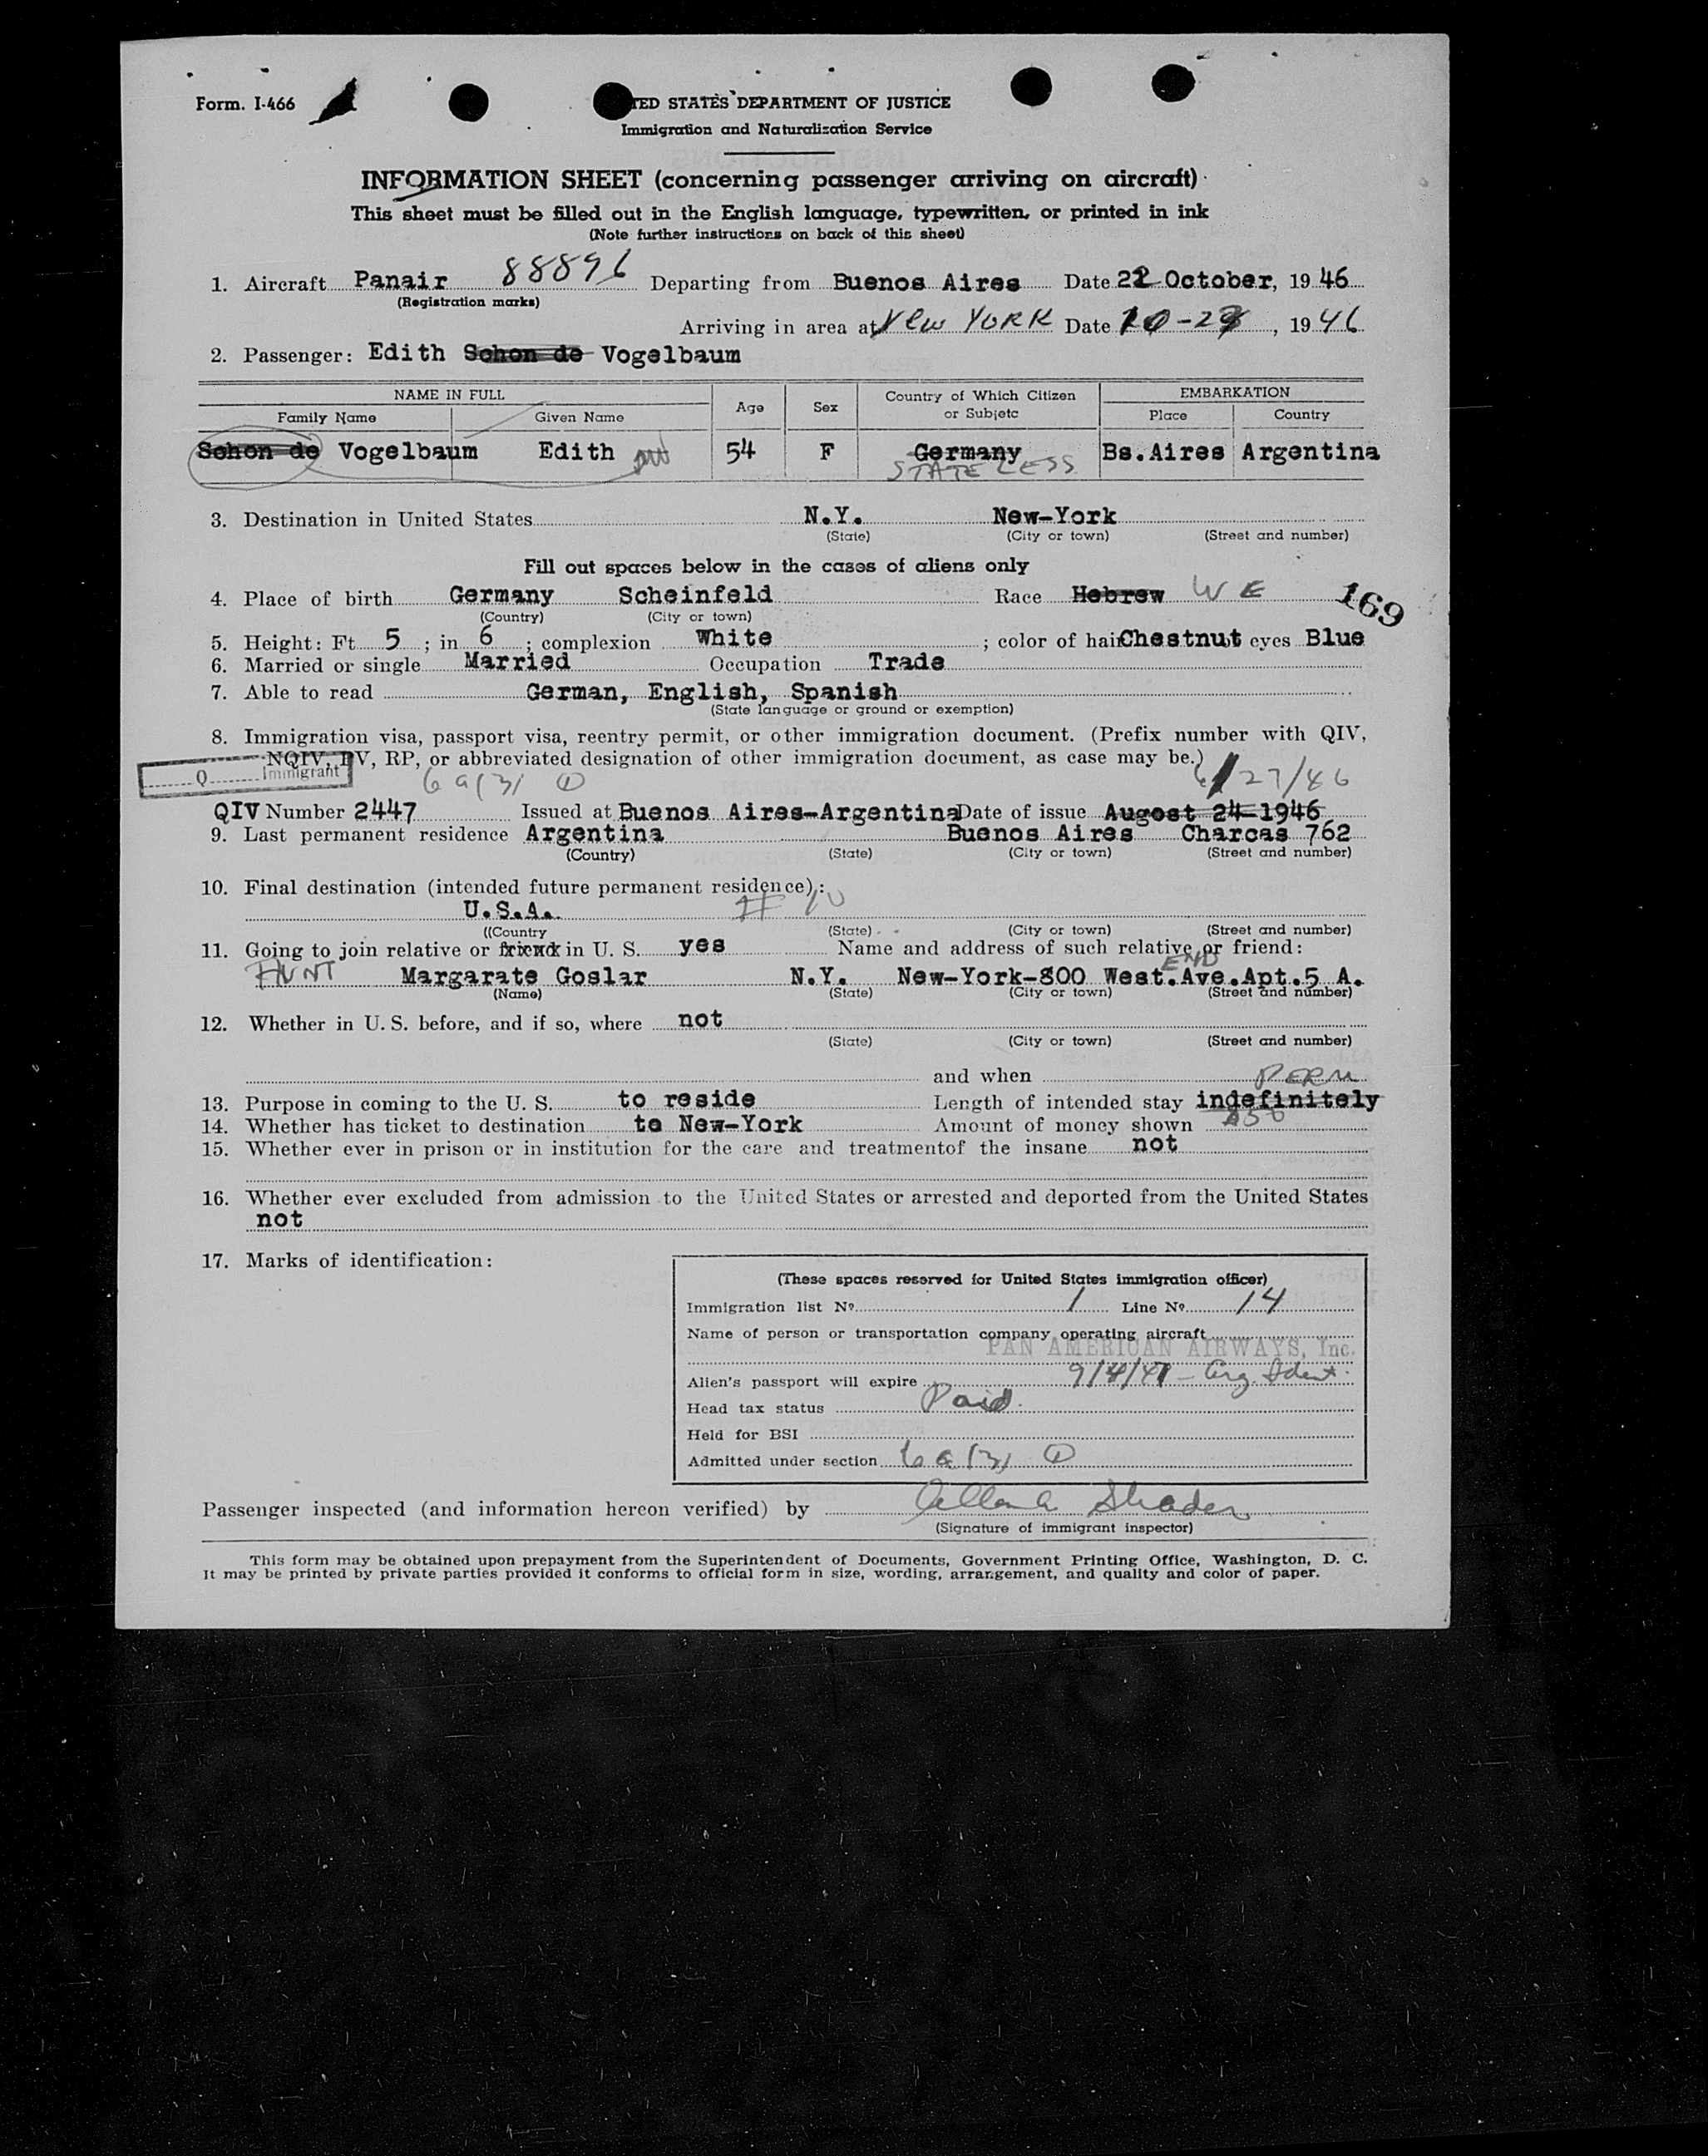 Form. I-466
TED STATES DEPARTMENT OF JUSTICE
Immigration and Naturalization Service
INFORMATION SHEET (concerning passenger arriving on aircraft)
This sheet must be filled out in the English language, typewritten, or printed in ink
(Note further instructions on back of this sheet)
1. Aircraft Panair 88896 Departing from Buenos Aires Date 22 October, 19 46
(Registration marks)
Arriving in area at New YORK Date 10-23, 19 46
2. Passenger: Edith Schon de Vogelbaum
NAME IN FULL Age Sex Country of Which Citizen or Subjetc EMBARKATION
Family Name Given Name Place Country
Schon de Vogelbaum Edith 54 F Germany Bs.Aires Argentina
STATELESS
3. Destination in United States N.Y. New-York
(State) (City or town) (Street and number)
Fill out spaces below in the cases of aliens only
4. Place of birth Germany Scheinfeld Race Hebrew W E 169
(Country) (City or town)
5. Height: Ft 5 ; in 6 ; complexion White ; color of hair Chestnut eyes Blue
6. Married or single Married Occupation Trade
7. Able to read German, English, Spanish
(State language or ground or exemption)
8. Immigration visa, passport visa, reentry permit, or other immigration document. (Prefix number with QIV,
NQIV, PV, RP, or abbreviated designation of other immigration document, as case may be.)
Q Immigrant 6 a (3) ① 6/27/46
QIV Number 2447 Issued at Buenos Aires-Argentina Date of issue Augost 24 1946
9. Last permanent residence Argentina Buenos Aires Charcas 762
(Country) (State) (City or town) (Street and number)
10. Final destination (intended future permanent residence):
U.S.A.
((Country (State) (City or town) (Street and number)
11. Going to join relative or friend in U. S. yes Name and address of such relative or friend:
AUNT Margarate Goslar N.Y. New-York-800 West. END Ave.Apt.5 A.
(Name) (State) (City or town) (Street and number)
12. Whether in U. S. before, and if so, where not
(State) (City or town) (Street and number)
and when
PERM
13. Purpose in coming to the U. S. to reside Length of intended stay indefinitely
14. Whether has ticket to destination to New-York Amount of money shown
15. Whether ever in prison or in institution for the care and treatmentof the insane not
16. Whether ever excluded from admission to the United States or arrested and deported from the United States
not
17. Marks of identification:
(These spaces reserved for United States immigration officer)
Immigration list Nº 1 Line Nº 14
Name of person or transportation company operating aircraft
PAN AMERICAN AIRWAYS, Inc.
Alien's passport will expire 9/4/47 - Arg Ident.
Head tax status Paid
Held for BSI
Admitted under section 6 a (3) ①
Passenger inspected (and information hereon verified) by
(Signature of immigrant inspector)
This form may be obtained upon prepayment from the Superintendent of Documents, Government Printing Office, Washington, D. C.
It may be printed by private parties provided it conforms to official form in size, wording, arrangement, and quality and color of paper.